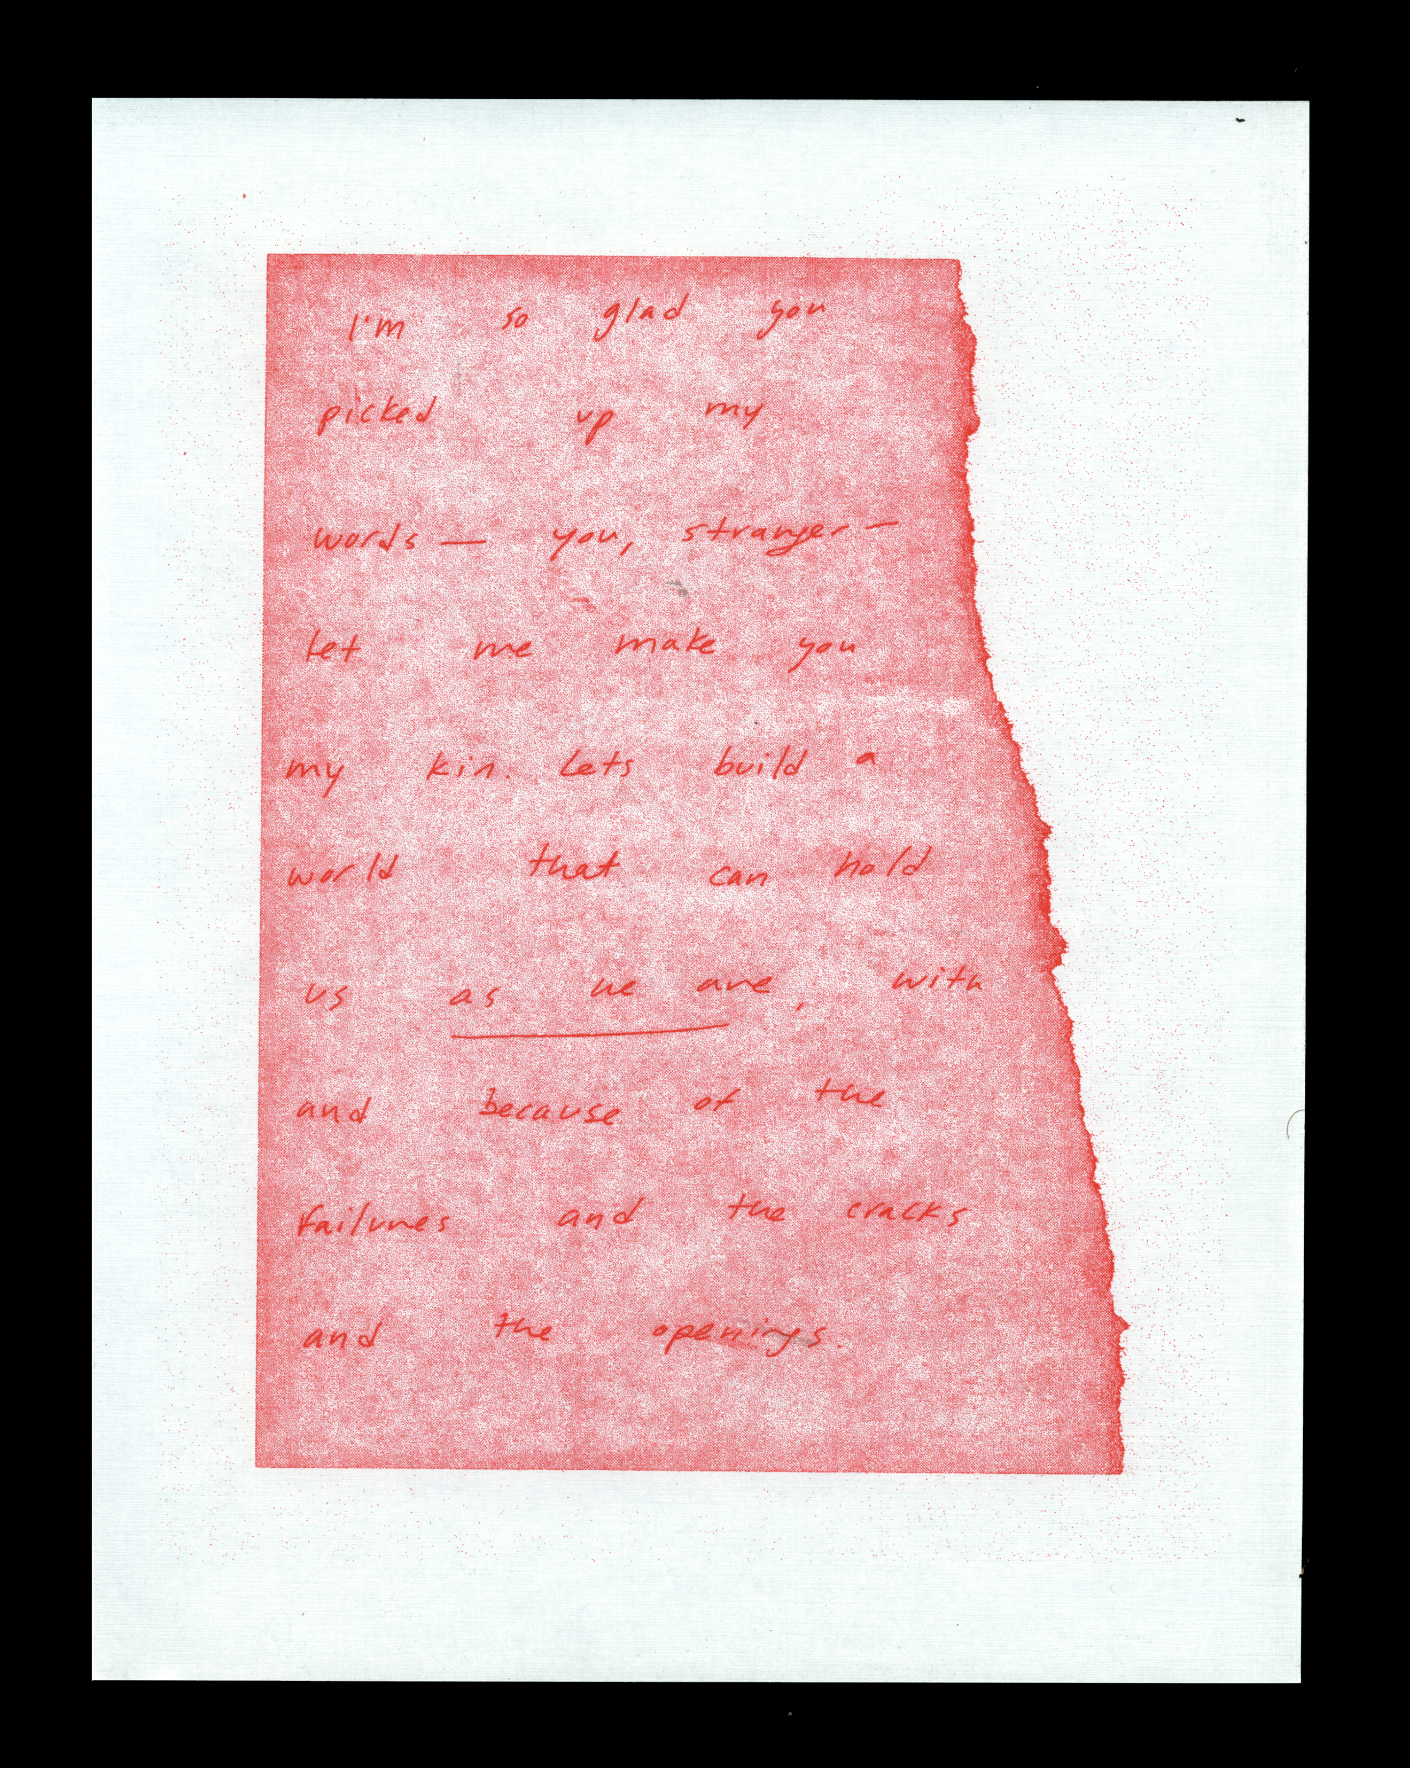 I'm so glad you
picked up my
words — you, stranger —
let me make you
my kin. Lets build a
world that can hold
us as we are, with
and because of the
failures and the cracks
and the openings.